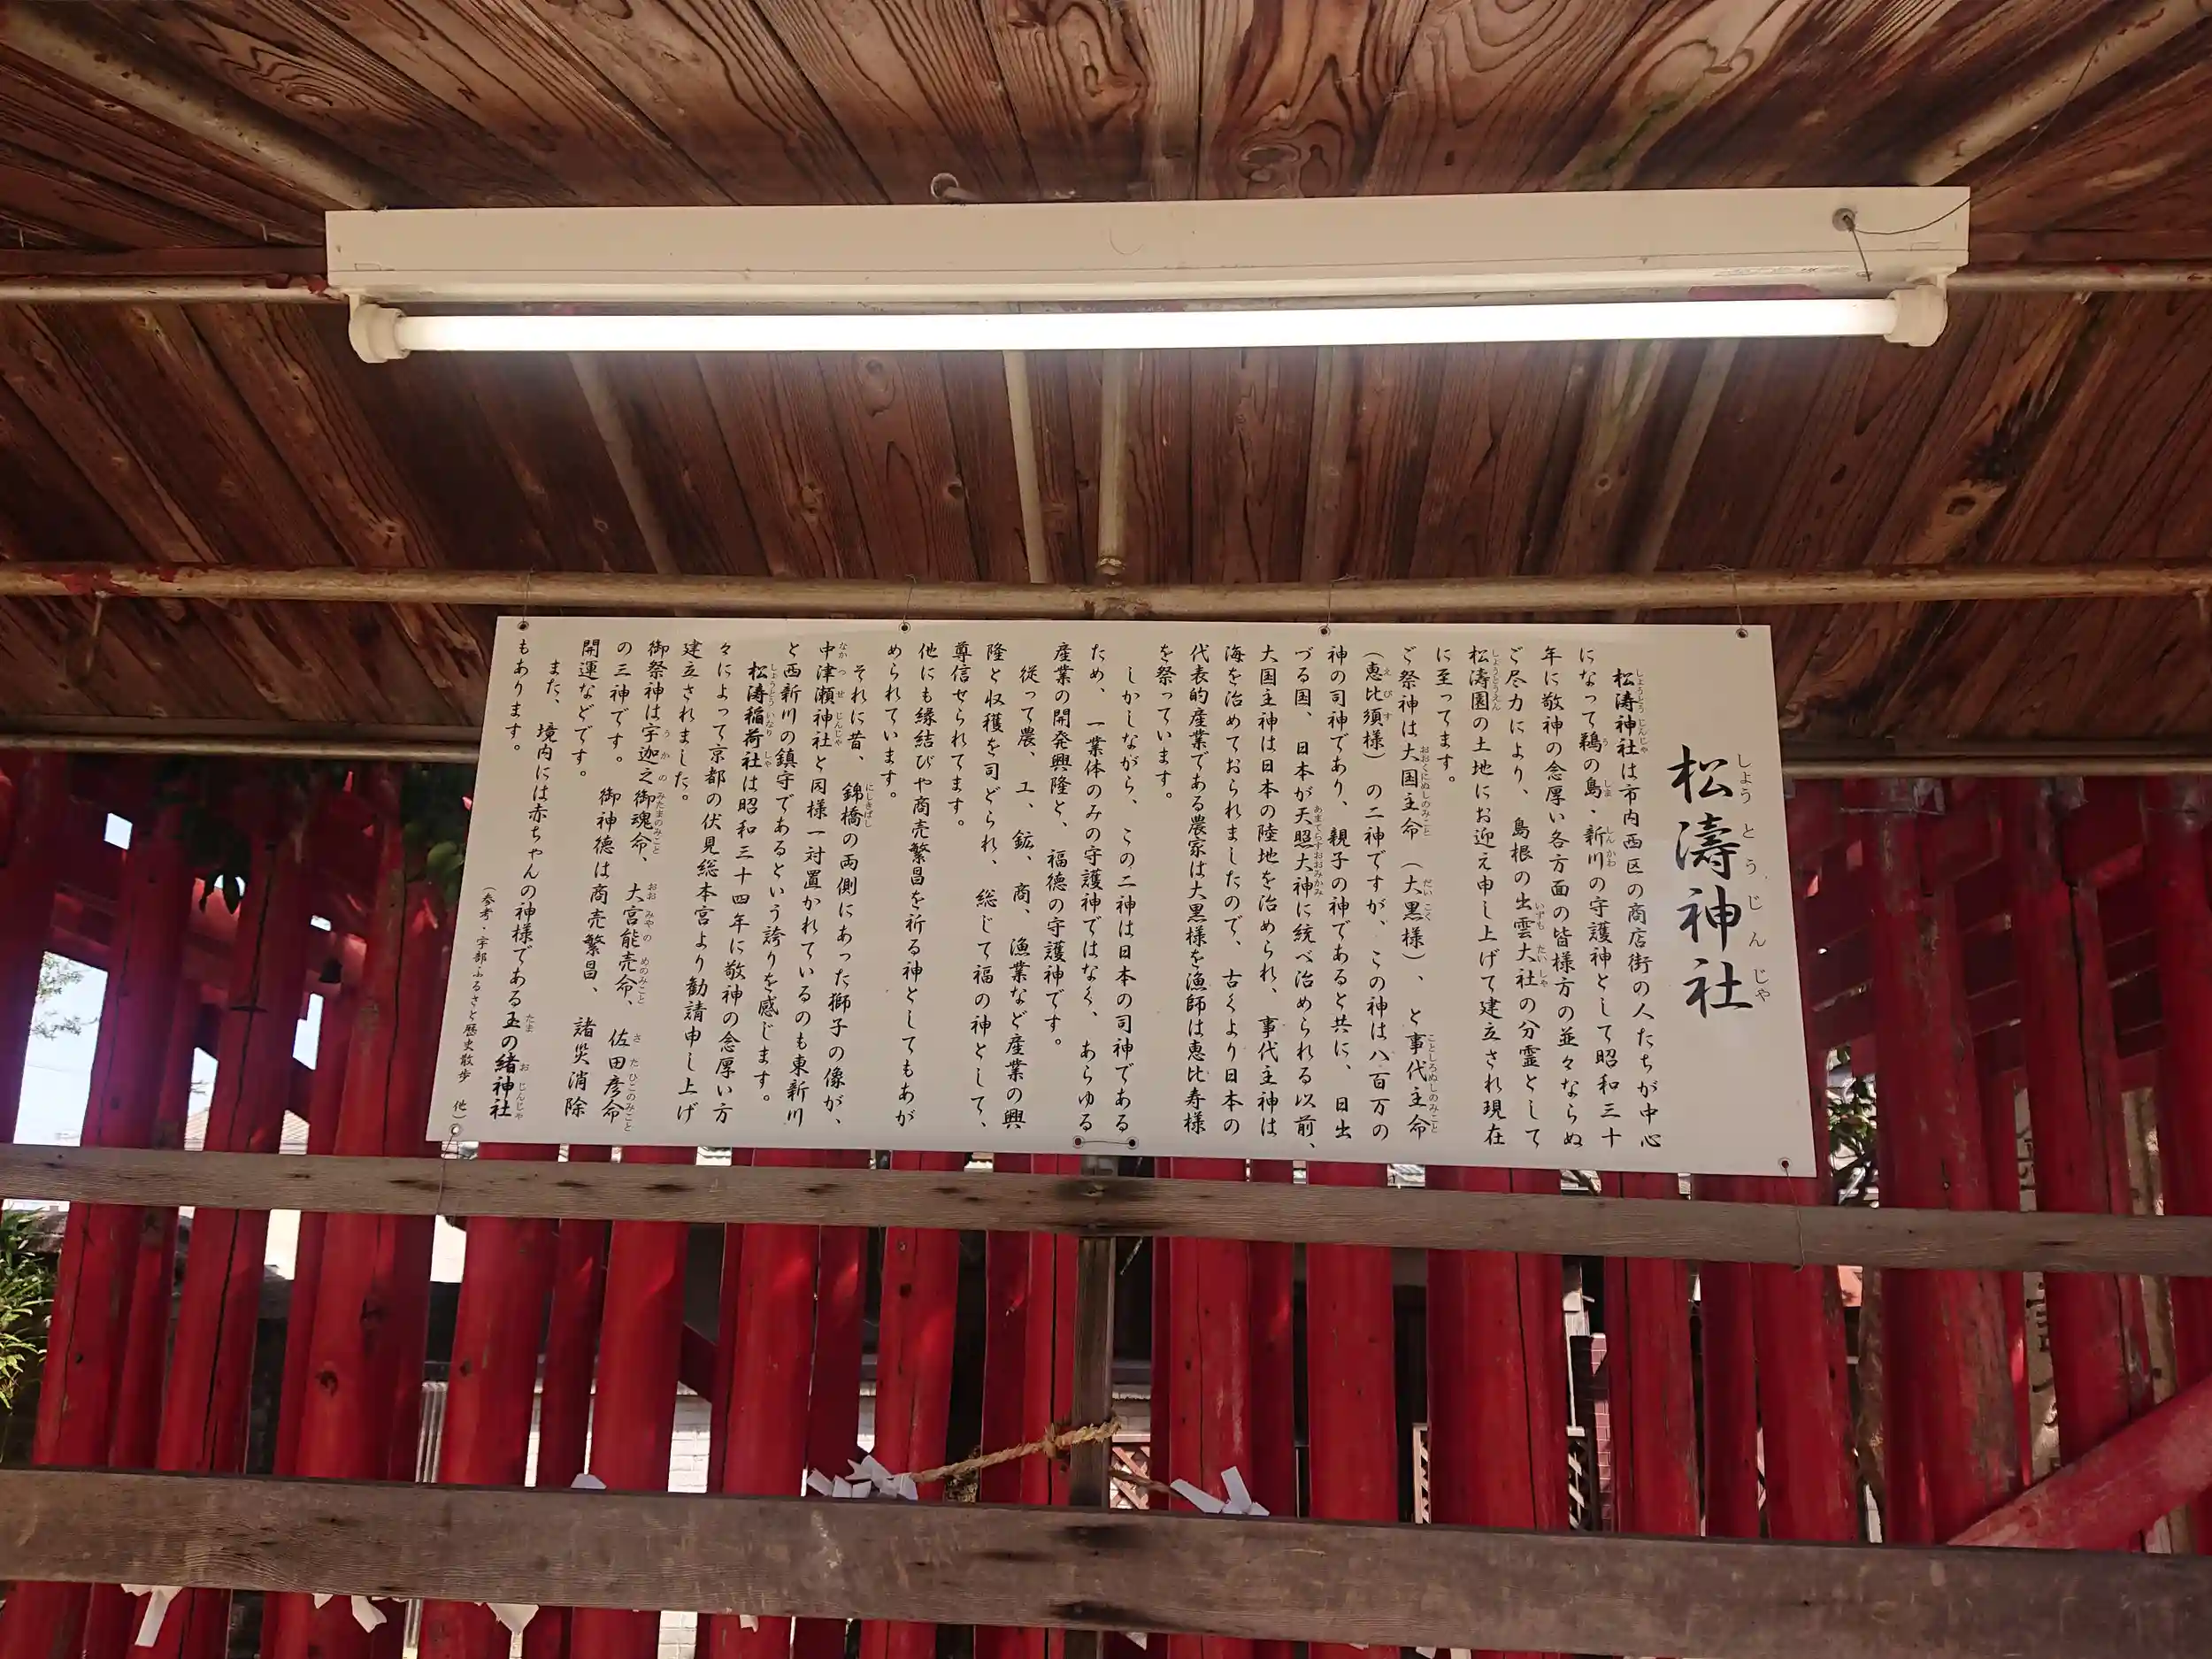 松濤神社
松濤神社は市内西区の商店街の人たちが中心
になって鵜の島・新川の守護神として昭和三十
年に敬神の念厚い各方面の皆様方の並々ならぬ
ご尽力により、島根の出雲大社の分霊として
松濤園の土地にお迎え申し上げて建立され現在
に至ってます。
ご祭神は大国主命(大黒様)、と事代主命
(恵比須様)の二神ですが、この神は八百万の
神の司神であり、親子の神であると共に、日出
づる国、日本が天照大神に統べ治められる以前、
大国主神は日本の陸地を治められ、事代主神は
海を治めておられましたので、古くより日本の
代表的産業である農家は大黒様を漁師は恵比寿様
を祭っています。
しかしながら、この二神は日本の司神である
ため、一業体のみの守護神ではなく、あらゆる
産業の開発興隆と、福徳の守護神です。
従って農、工、鉱、商、漁業など産業の興
隆と収穫を司どられ、総じて福の神として、
尊信せられてます。
他にも縁結びや商売繁昌を祈る神としてもあが
められています。
それに昔、錦橋の両側にあった獅子の像が、
中津瀬神社と同様一対置かれているのも東新川
と西新川の鎮守であるという誇りを感じます。
松濤稲荷社は昭和三十四年に敬神の念厚い方
々によって京都の伏見総本宮より勧請申し上げ
建立されました。
御祭神は宇迦之御魂命、大宮能売命、佐田彦命
の三神です。御神徳は商売繁昌、諸災消除
開運などです。
また、境内には赤ちゃんの神様である玉の緒神社
もあります。
(参考・宇部ふるさと歴史散歩 他)